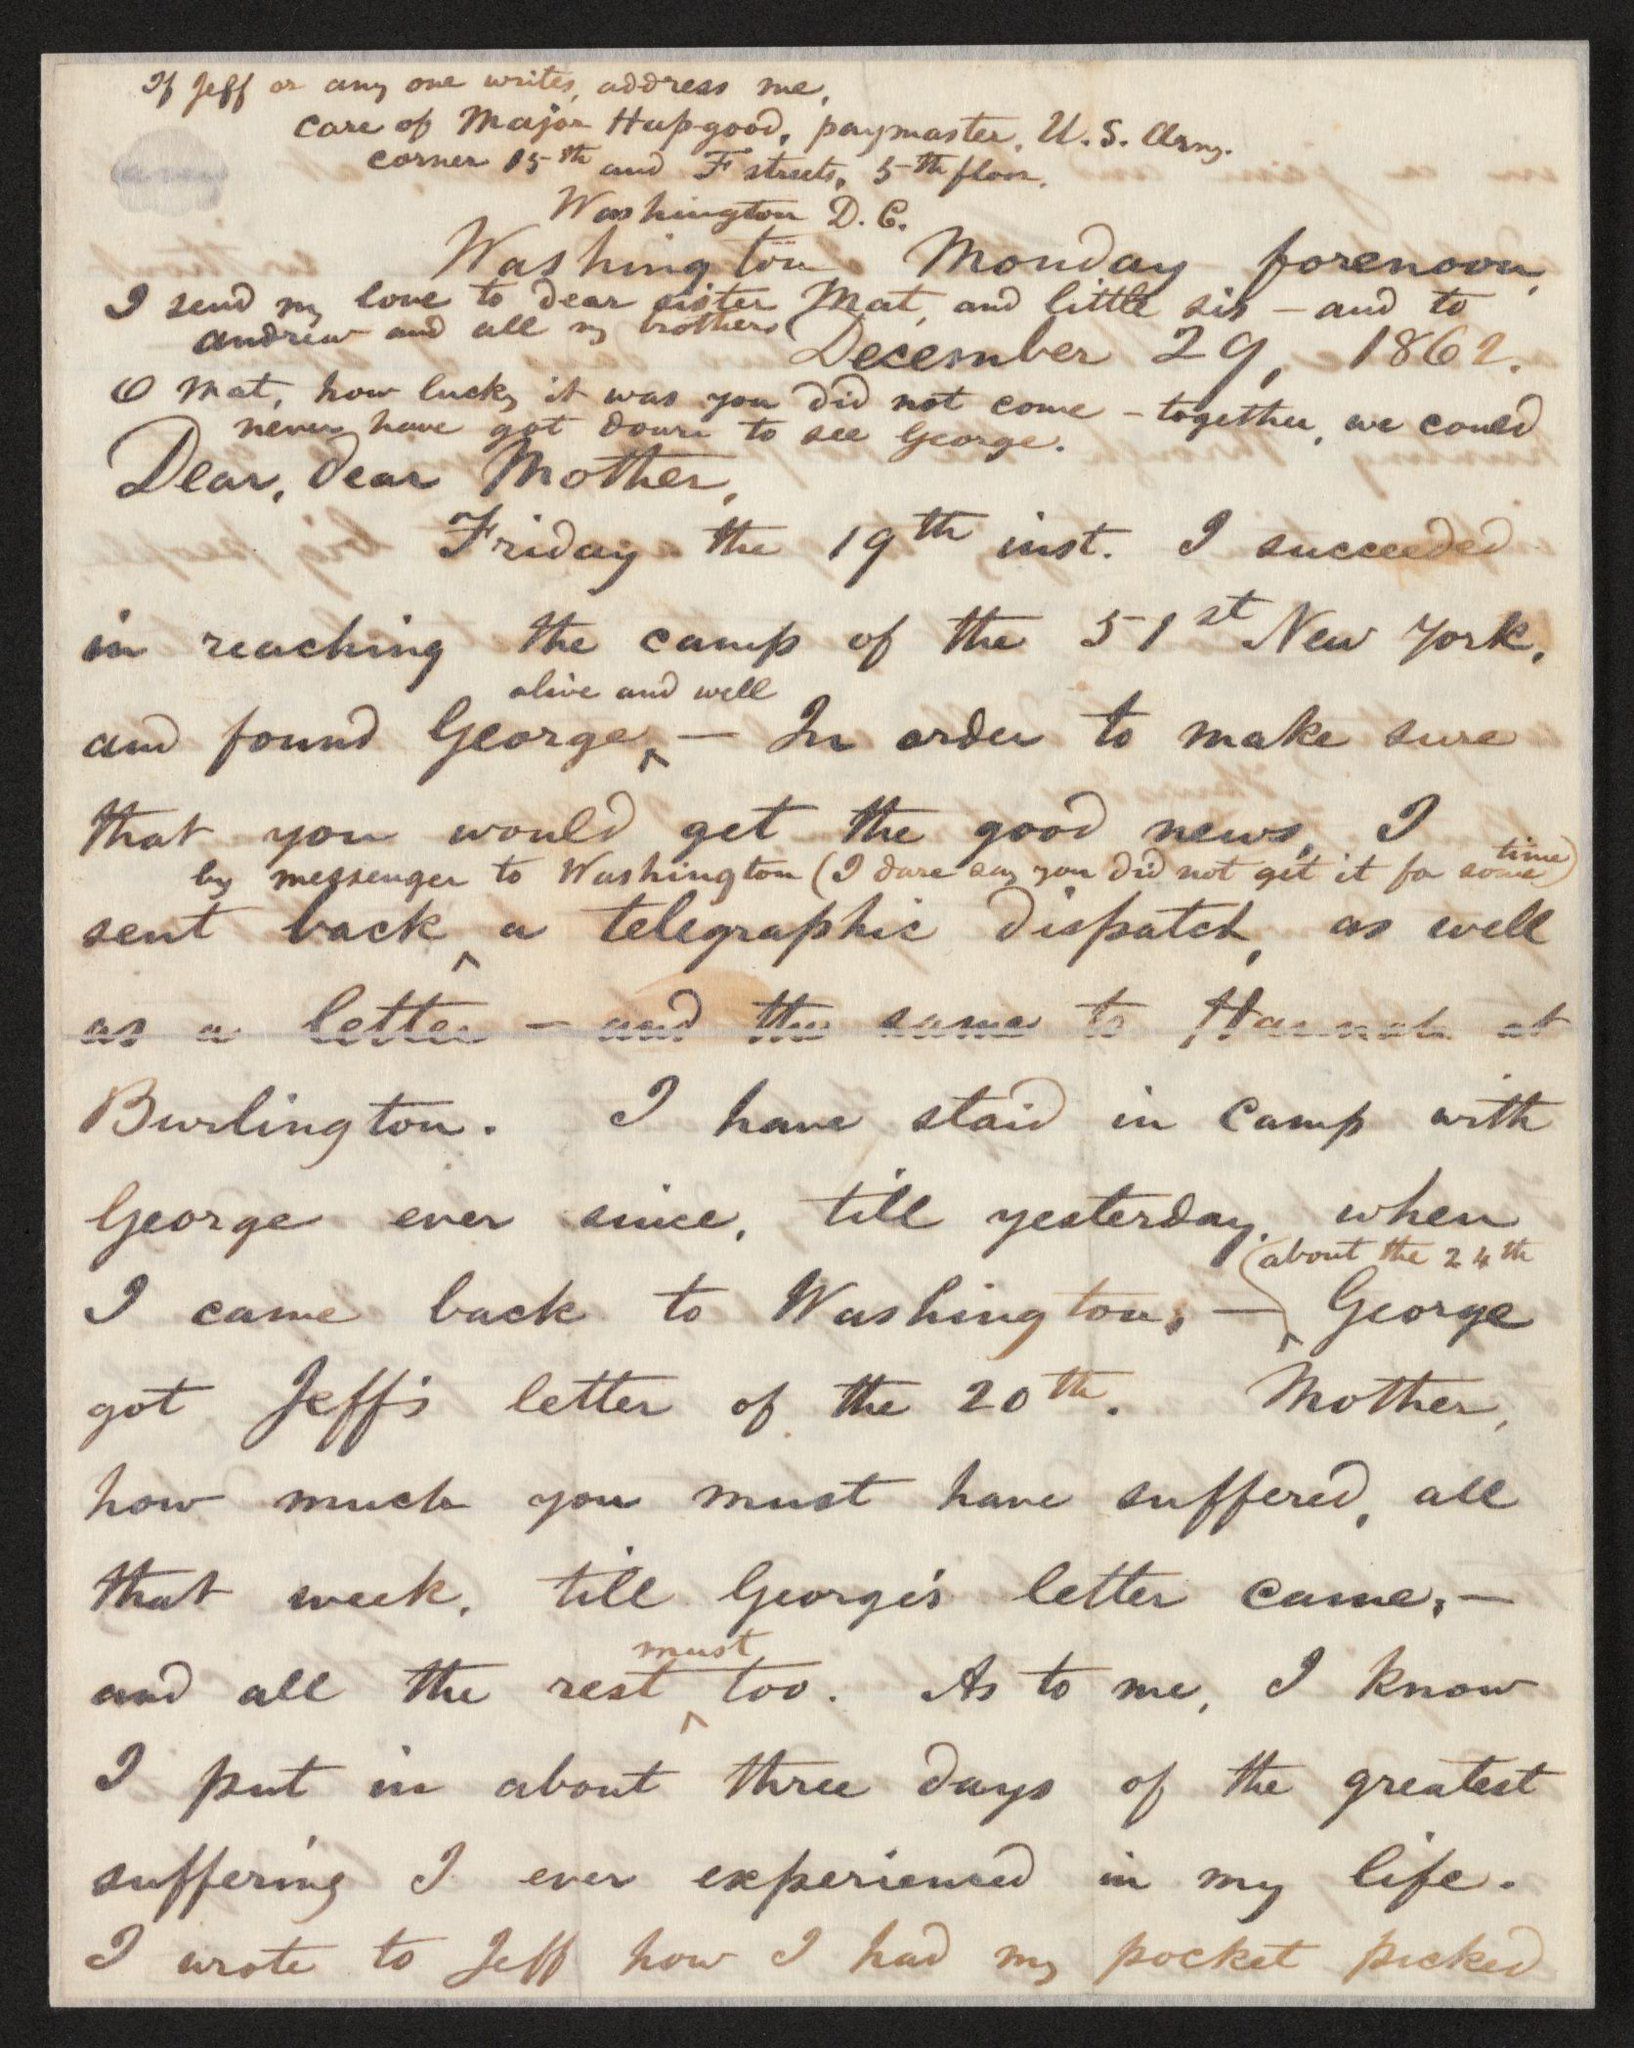 If Jeff or any one writes, address me,
care of Major Hapgood, paymaster, U.S. Army.
corner 15th and F streets, 5th floor.
Washington D.C.
Washington Monday forenoon,
I send my love to dear sister Mat, and little sis – and to
Andrew and all my brothers
December 29, 1862.
O Mat, how lucky it was you did not come – together, we could
never have got down to see George.
Dear, dear Mother,
Friday the 19th inst. I succeeded
in reaching the camp of the 51st New York,
alive and well
and found George ^ – In order to make sure
that you would get the good news, I
by messenger to Washington (I dare say you did not get it for some time)
sent back ^ a telegraphic dispatch, as well
as a letter – and the same to Hannah at
Burlington. I have staid in camp with
George ever since, till yesterday, when
about the 24th
I came back to Washington, – ^ George
got Jeff's letter of the 20th. Mother,
how much you must have suffered, all
that week, till George's letter came, –
must
and all the rest ^ too. As to me, I know
I put in about three days of the greatest
suffering I ever experienced in my life.
I wrote to Jeff how I had my pocket picked